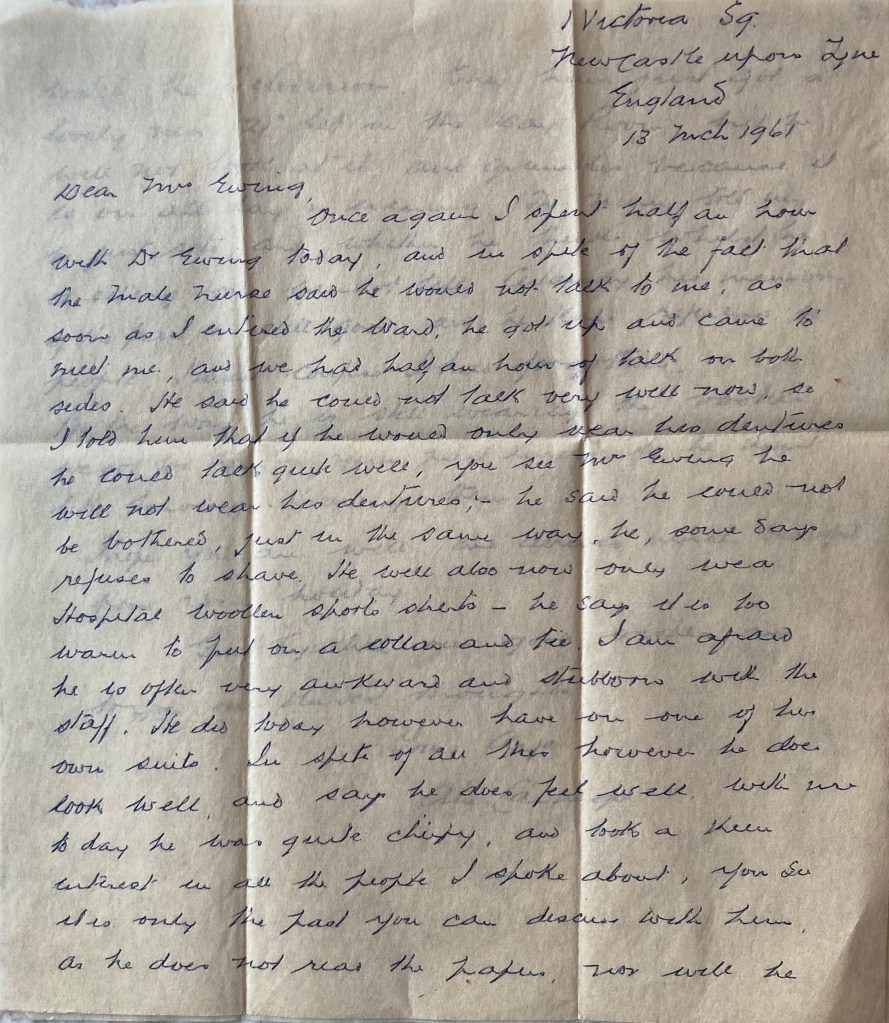 1 Victoria Sq.
Newcastle upon Tyne
England
13 Mch 1961
Dear Mrs Ewing,
Once again I spent half an hour
with Dr Ewing today, and in spite of the fact that
the Male Nurse said he would not talk to me, as
soon as I entered the Ward, he got up and came to
meet me, and we had half an hour of talk on both
sides. He said he could not talk very well now, so
I told him that if he would only wear his dentures
he could talk quite well, you see Mrs Ewing he
will not wear his dentures;- he said he could not
be bothered, just in the same way, he, some days
refuses to shave. He will also now only wear
Hospital woollen sports shirts - he says it is too
warm to put on a collar and tie. I am afraid
he is often very awkward and stubborn with the
staff. He did today however have on one of his
own suits. In spite of all this however he does
look well, and says he does feel well. with me
today he was quite chirpy, and took a keen
interest in all the people I spoke about, you see
it is only the past you can discuss with him,
as he does not read the papers, nor will he